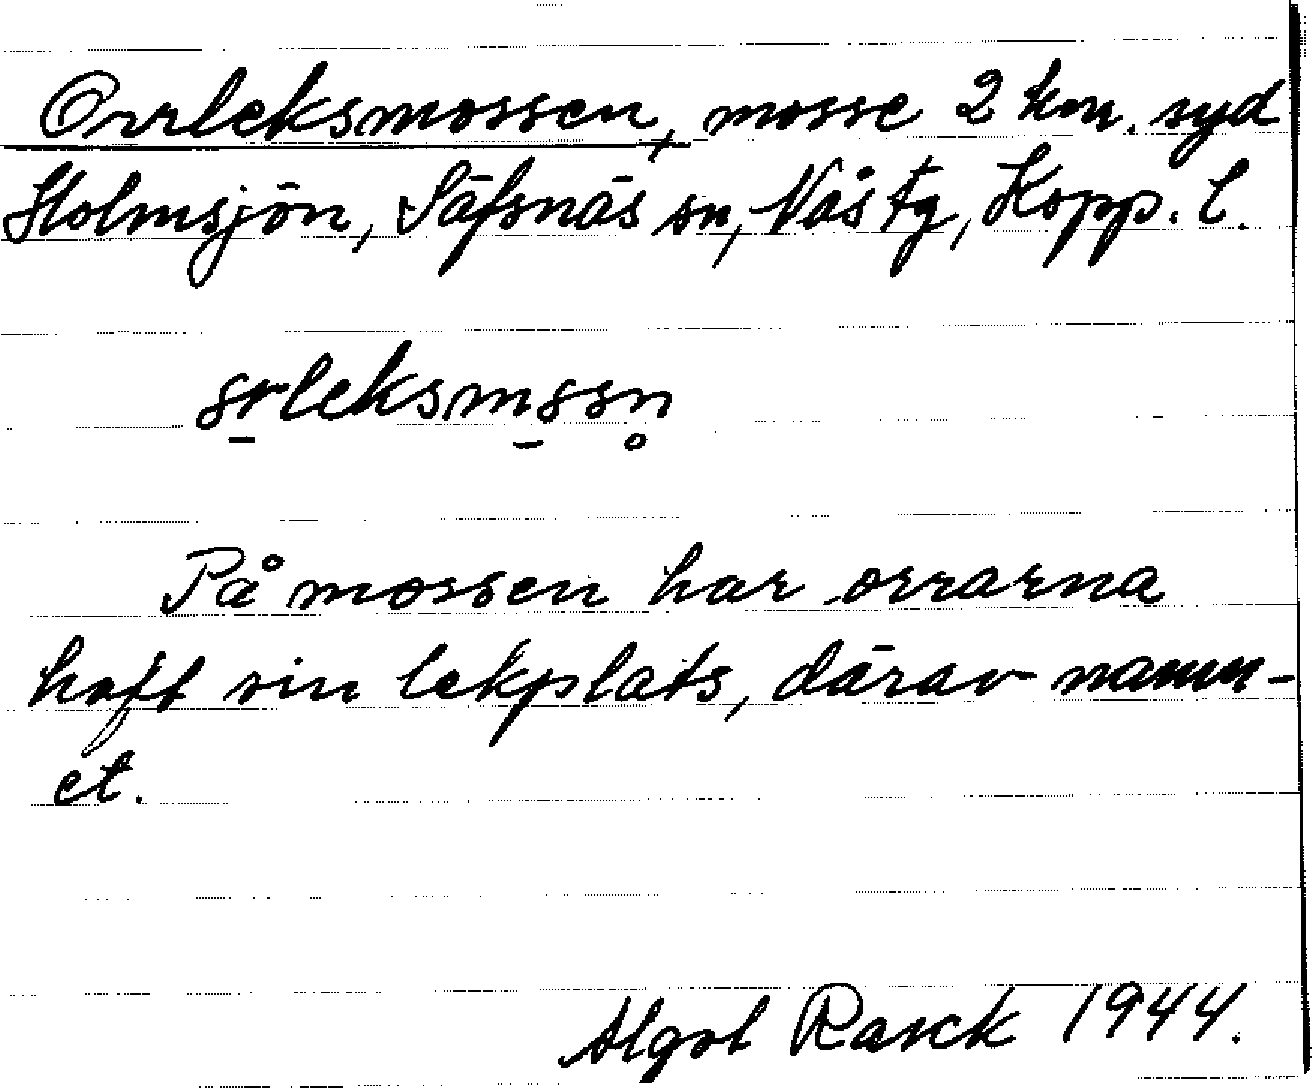 Orrleksmossen, mosse 2 km. syd
Holmsjön, Säfsnäs sn, Nås tg, Kopp. l.
På mossen har orrarna
haft sin lekplats, därav namn-
et.
Algot Rasck 1944.